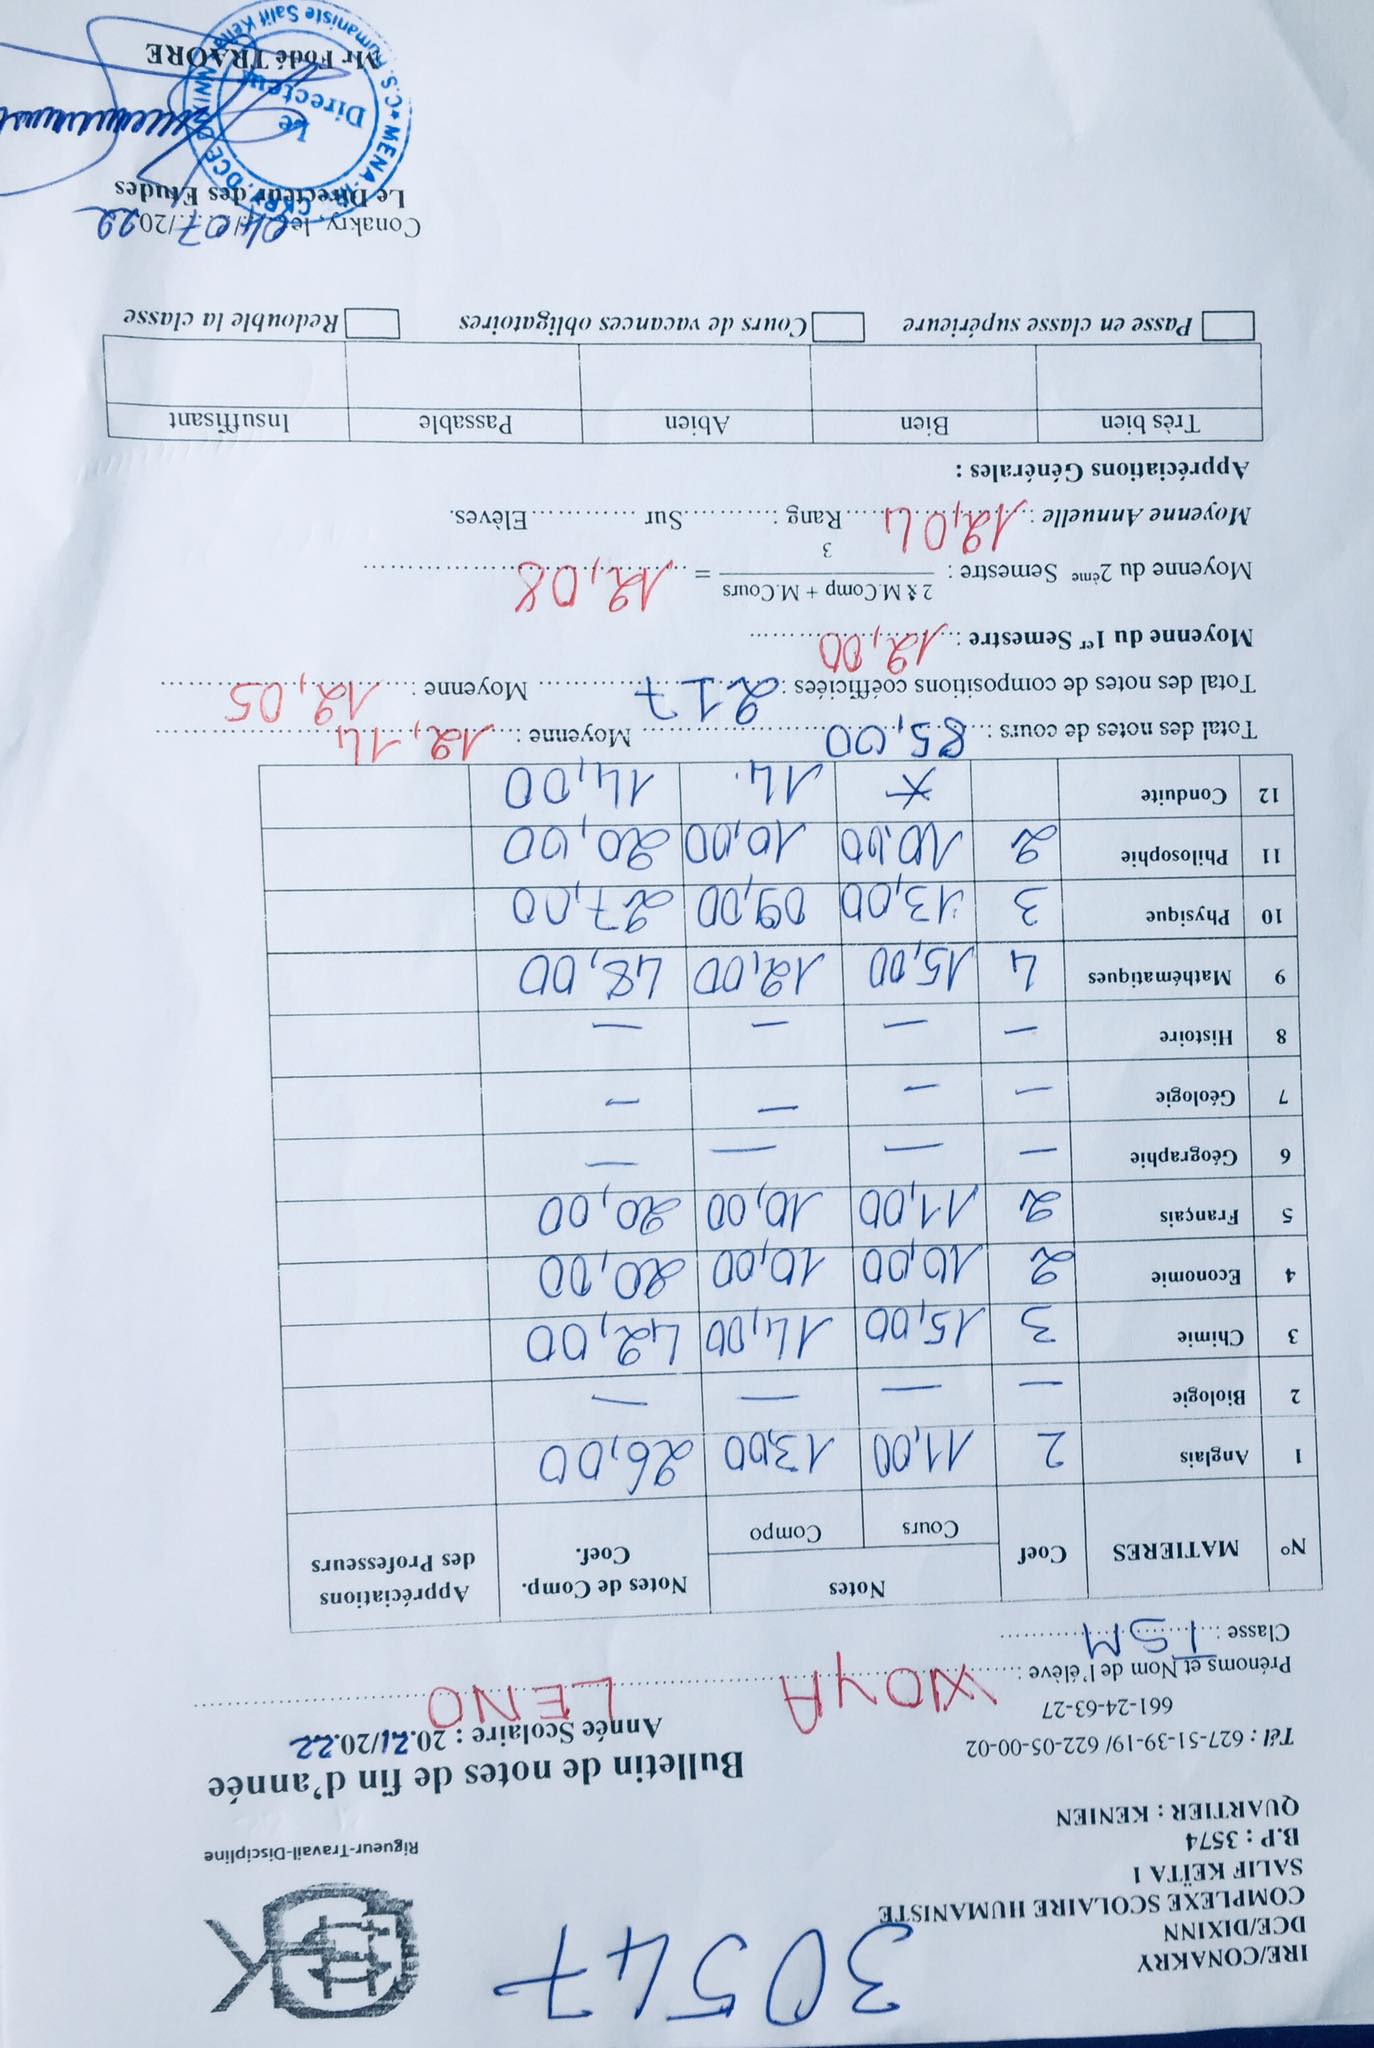 30547
IRE/CONAKRY
DCE/DIXINN
COMPLEXE SCOLAIRE HUMANISTE
SALIF KEÏTA 1
B.P : 3574
QUARTIER : KENIEN
Tél : 627-51-39-19/ 622-05-00-02
661-24-63-27
Rigueur-Travail-Discipline
Bulletin de notes de fin d'année
Année Scolaire : 20.21/20.22
Prénoms et Nom de l'élève : LENO
Classe : SM
N° MATIERES Coef Notes Notes de Comp. Coef. Appréciations des Professeurs
Cours Compo
1 Anglais 2 11,00 13,00 26,00
2 Biologie — — — —
3 Chimie 3 15,00 14,00 42,00
4 Economie 2 10,00 10,00 20,00
5 Français 2 11,00 10,00 20,00
6 Géographie — — — —
7 Géologie — — — —
8 Histoire — — — —
9 Mathématiques 4 15,00 12,00 48,00
10 Physique 3 13,00 09,00 27,00
11 Philosophie 2 10,00 10,00 20,00
12 Conduite 14 14,00
Total des notes de cours : 85,00 Moyenne : 12,14
Total des notes de compositions coéfficiées : 217 Moyenne : 12,05
Moyenne du 1er Semestre : 12,00
Moyenne du 2ème Semestre : 2 x M.Comp + M.Cours / 3 = 12,08
Moyenne Annuelle : 12,04 Rang : Sur Elèves.
Appréciations Générales :
Très bien Bien Abien Passable Insuffisant
Passe en classe supérieure Cours de vacances obligatoires Redouble la classe
Conakry, le 04/07/2022
Le Directeur des Etudes
Le Directeur
Mr Fodé TRAORE